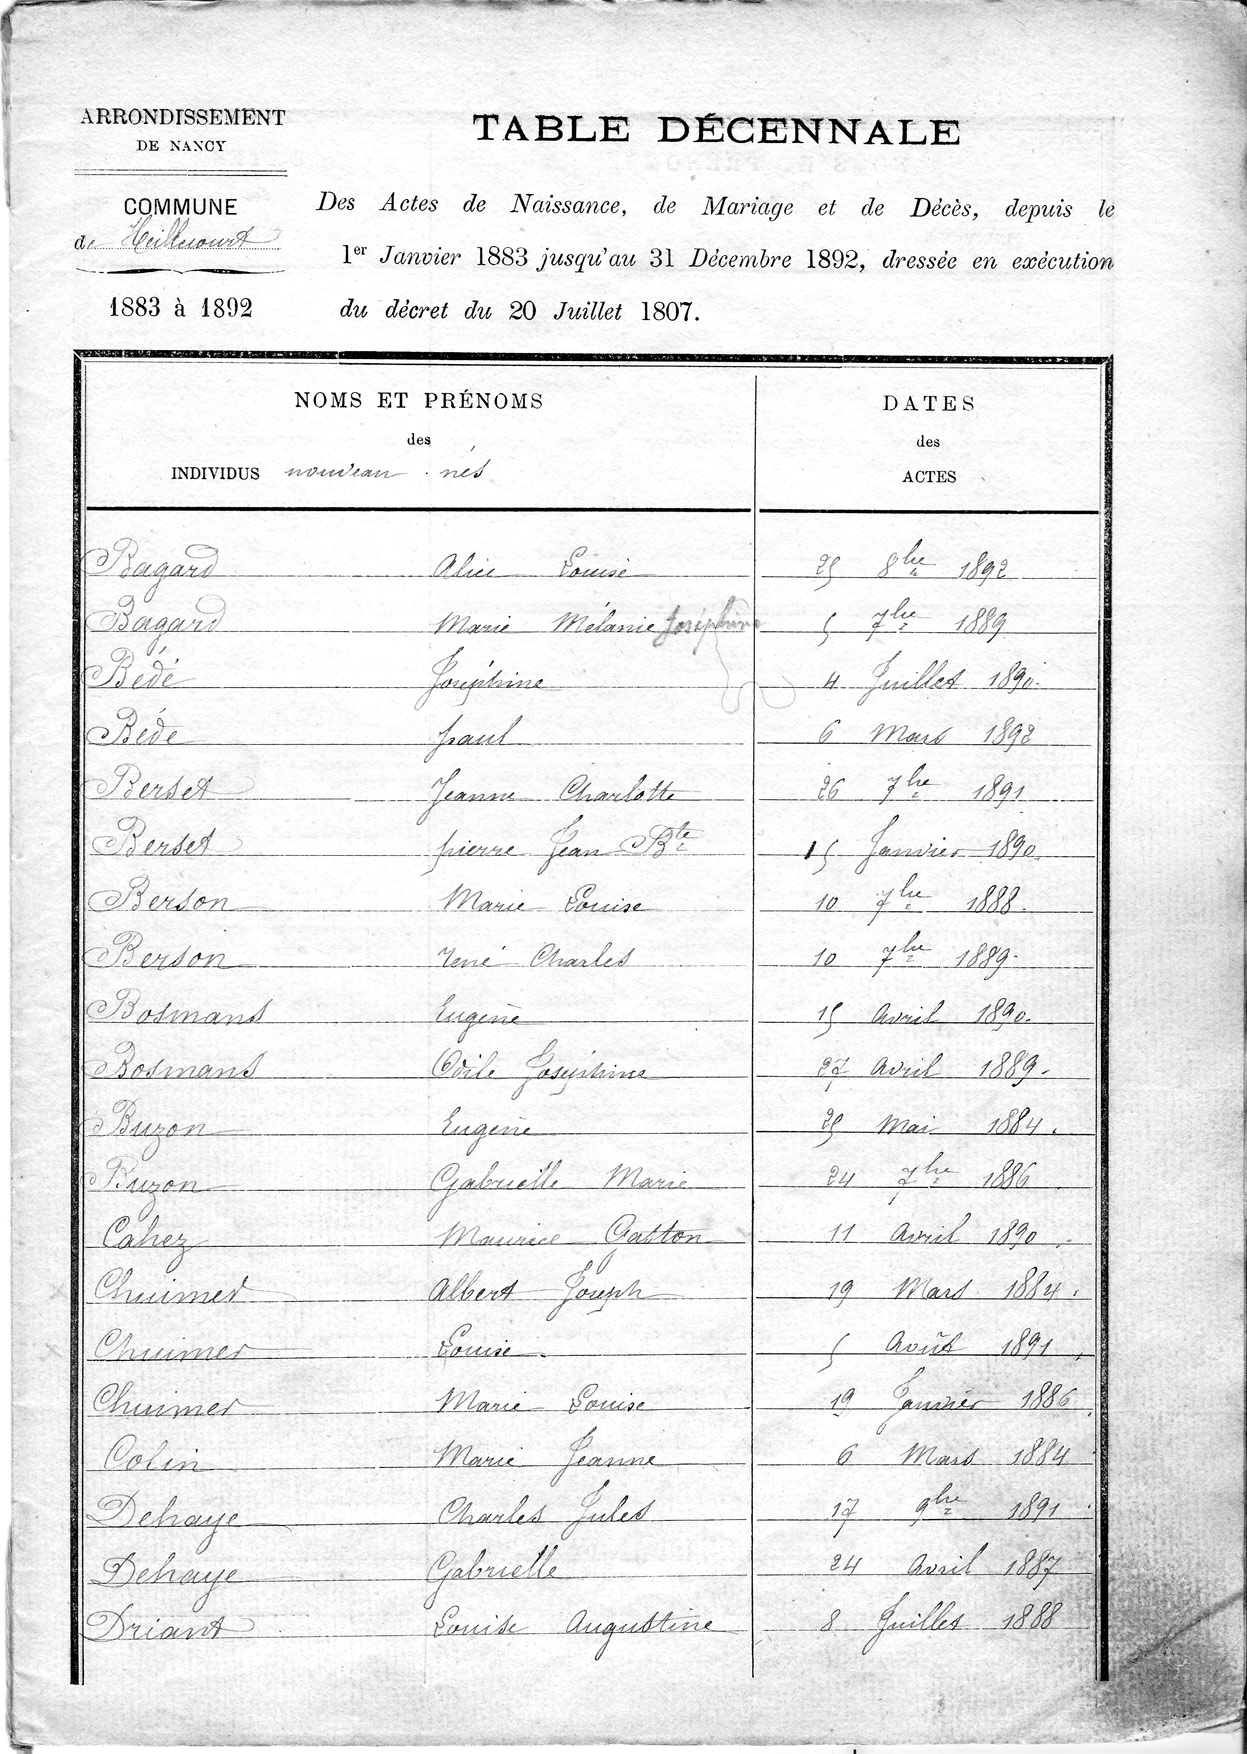 ARRONDISSEMENT
DE NANCY
COMMUNE
de Heillecourt
1883 à 1892
TABLE DÉCENNALE
Des Actes de Naissance, de Mariage et de Décès, depuis le
1er Janvier 1883 jusqu'au 31 Décembre 1892, dressée en exécution
du décret du 20 Juillet 1807.
NOMS ET PRÉNOMS
des
INDIVIDUS nouveau-nés
DATES
des
ACTES
Bagard Alice Louise 25 8bre 1892
Bagard Marie Mélanie Joséphine 5 7bre 1889
Bédé Joséphine 4 Juillet 1890.
Béde paul 6 Mars 1892
Berset Jeanne Charlotte 26 7bre 1891
Berset pierre Jean Bte 15 Janvier 1890.
Berson Marie Louise 10 7bre 1888.
Berson rené Charles 10 7bre 1889.
Bosmans Eugène 15 Avril 1890.
Bosmans Odile Joséphine 27 Avril 1889.
Buzon Eugène 25 Mai 1884.
Buzon Gabrielle Marie 24 7bre 1886.
Cahez Maurice Gaston 11 Avril 1890.
Chuimer Albert Joseph 19 Mars 1884.
Chuimer Louise. 5 Août 1891.
Chuimer Marie Louise 19 Janvier 1886.
Colin Marie Jeanne 6 Mars 1884
Dehaye Charles Jules 17 9bre 1891.
Dehaye Gabrielle 24 Avril 1887
Driant Louise Augustine 8 Juillet 1888